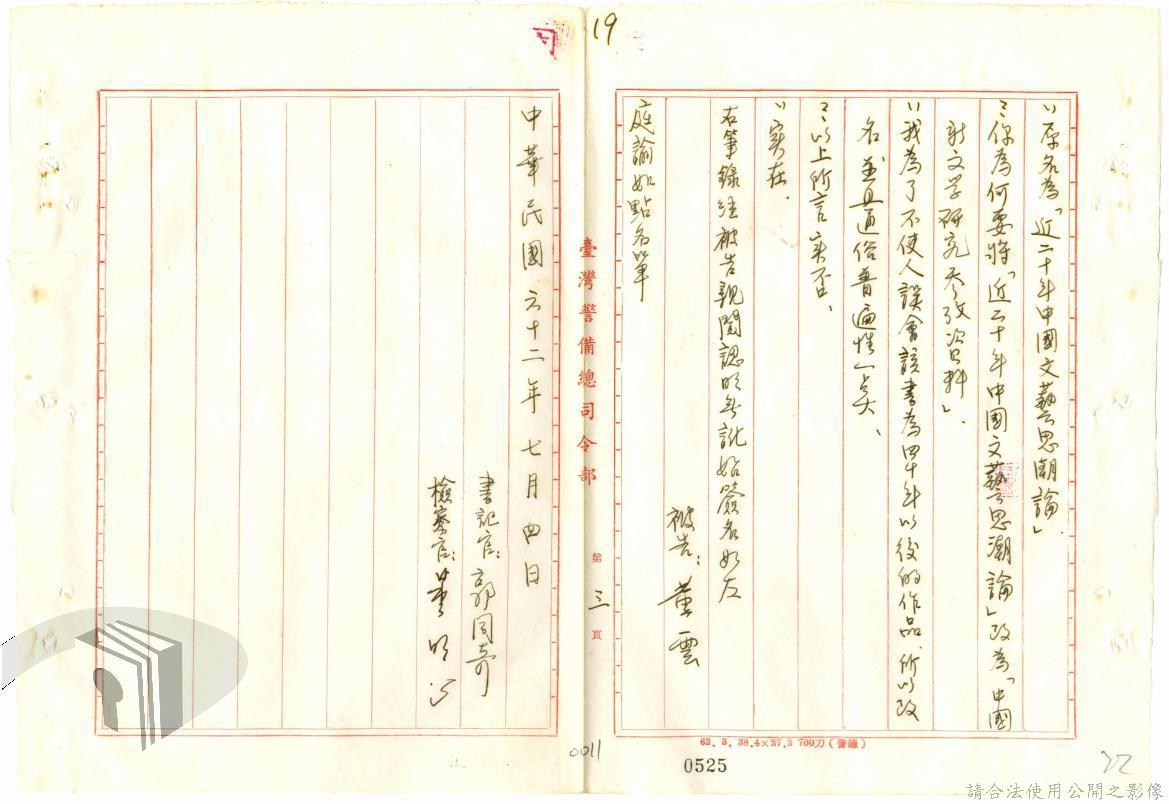 19
〃原名為「近二十年中國文藝思潮論」
〻你為何要將「近二十年中國文藝思潮論」改為「中國
新文学研究参攷資料」、
〃我為了不使人誤會該書為四十年以後的作品、所以改
名並且通俗普遍性一点、
〻以上所言实否、
〃实在.
右筆錄経被告親閱認明無訛始簽名如左
被告：黃雲
庭諭如點名單
臺灣警備總司令部
第三頁
中華民國六十二年七月四日
書記官：郭同奇
檢察官：
62. 3. 38.4×27.2 700刀(警總)
0011
0525
22
請合法使用公開之影像